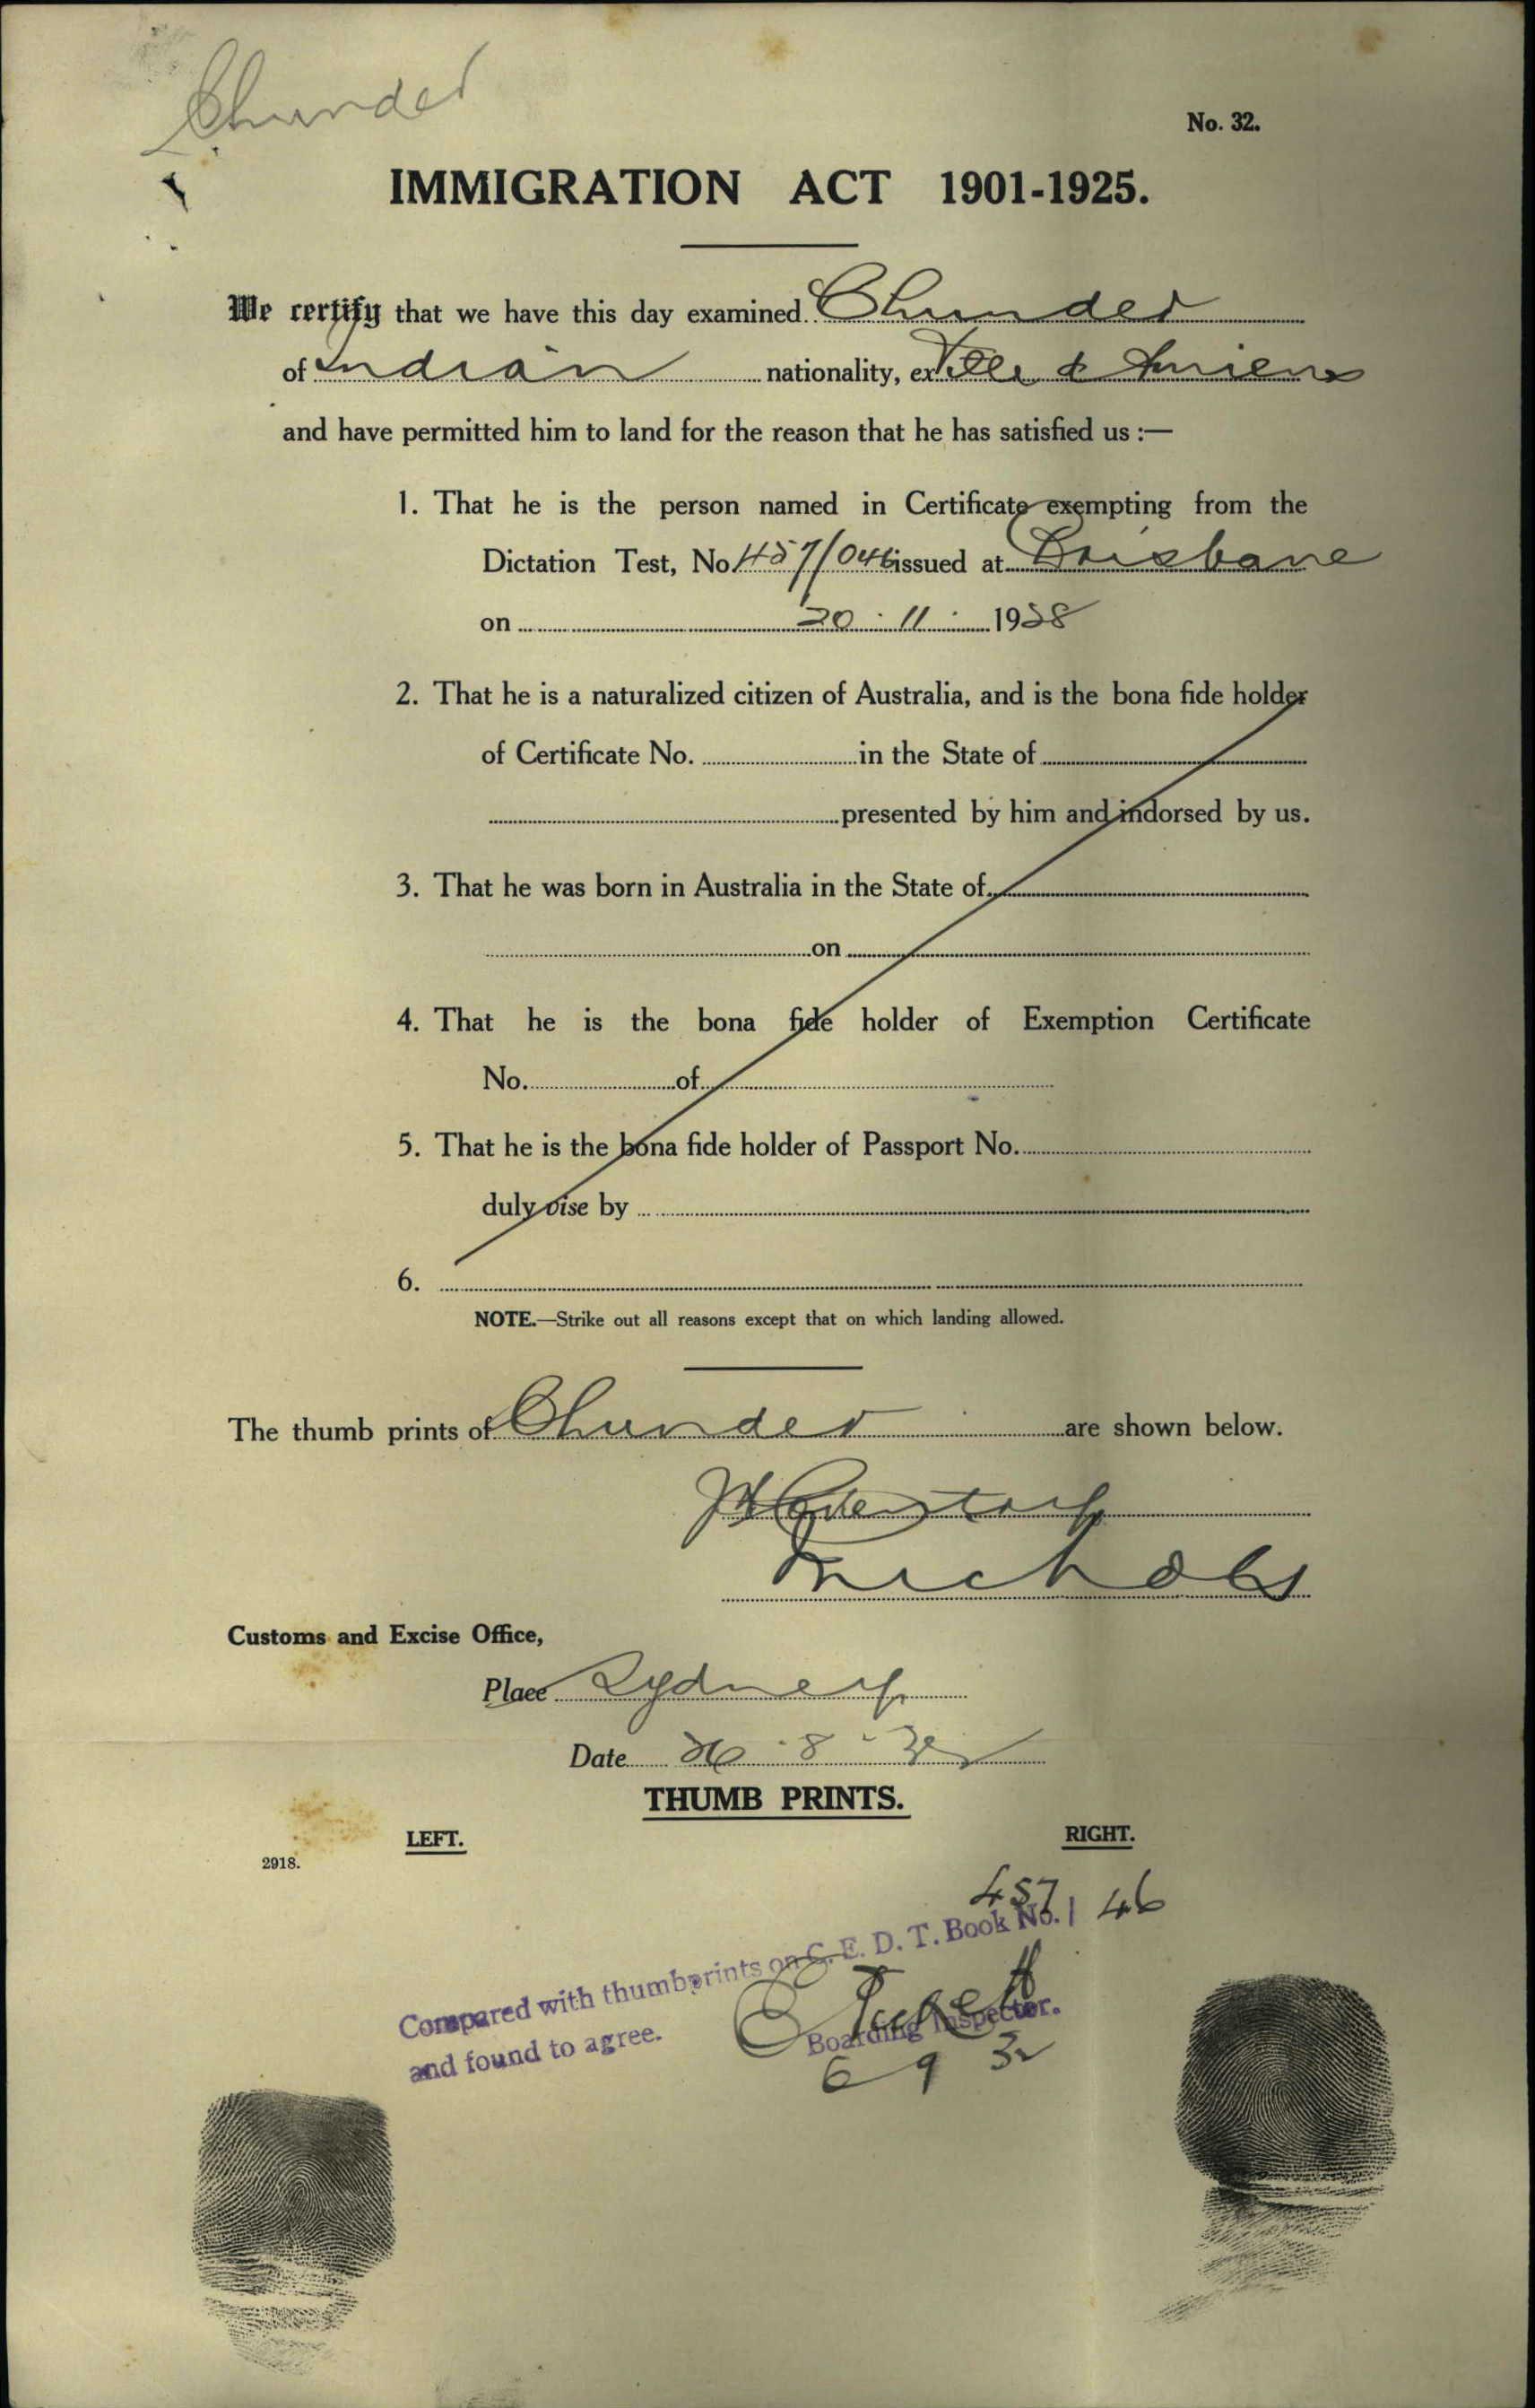 Chunder
No. 32.
IMMIGRATION ACT 1901-1925.
We certify that we have this day examined Chunder
of Indian nationality, ex Ville d' Amiens
and have permitted him to land for the reason that he has satisfied us :—
1. That he is the person named in Certificate exempting from the
Dictation Test, No 457/046 issued at Brisbane
on 20 . 11 . 1928
2. That he is a naturalized citizen of Australia, and is the bona fide holder
of Certificate No. in the State of
presented by him and indorsed by us.
3. That he was born in Australia in the State of
on
4. That he is the bona fide holder of Exemption Certificate
No. of
5. That he is the bona fide holder of Passport No.
duly vise by
6.
NOTE.—Strike out all reasons except that on which landing allowed.
The thumb prints of Chunder are shown below.
Nichols
Customs and Excise Office,
Place Sydney
Date 26 . 8 . 32
THUMB PRINTS.
LEFT. RIGHT.
2918.
457 46
Compared with thumbprints on C. E. D. T. Book No. /
and found to agree.
Boarding Inspector.
6 9 32